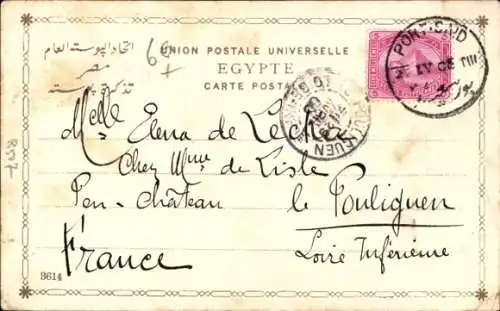 UNION POSTALE UNIVERSELLE
اتحاد البوستة العام
EGYPTE
مصر
CARTE POSTALE
تذكرة بوستة
PORT-SAID
Melle Elena de
Chez Mme de Lisle
Pen-Château le Pouliguen
Loire Inférieure
France
3614